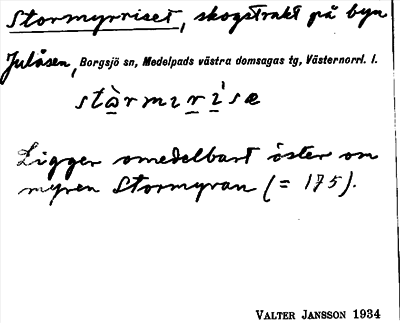 Stormyrriset, skogstrakt på byn
Julåsen, Borgsjö sn, Medelpads västra domsagas tg, Västernorrl. l.
stàrmırìsæ
Ligger omedelbart öster om
myren Stormyran (= 175).
VALTER JANSSON 1934